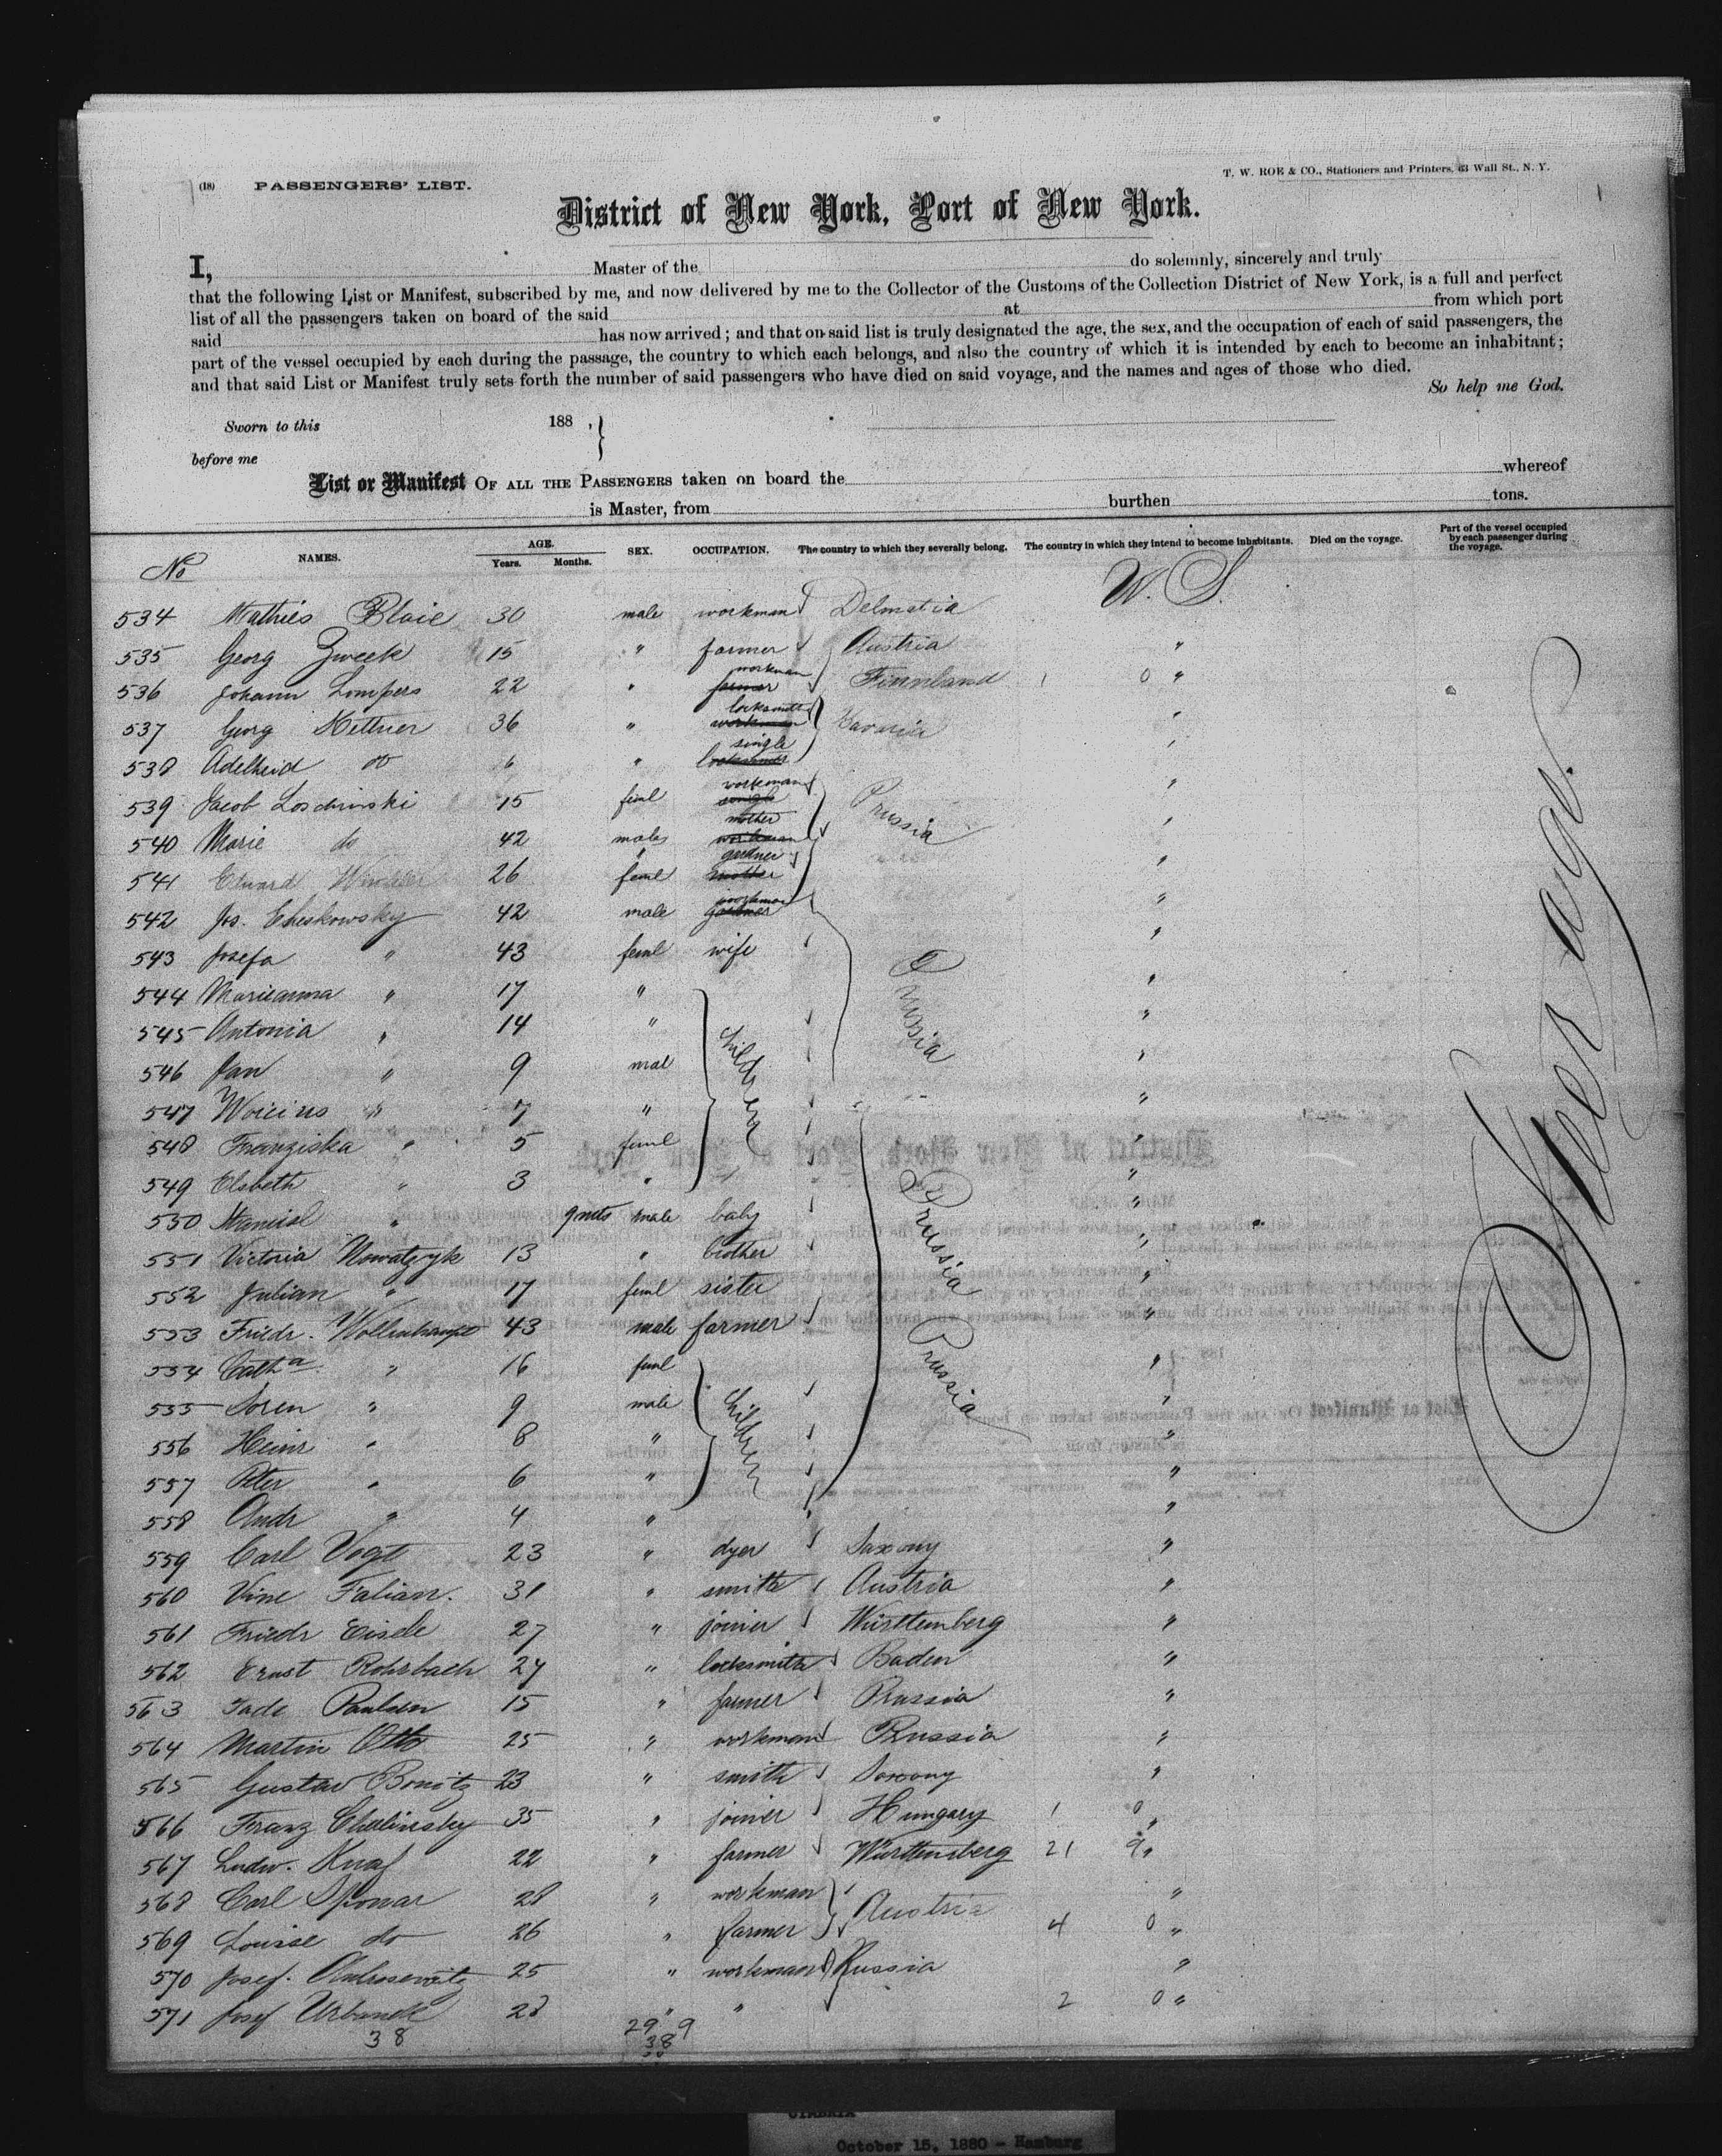 (18) PASSENGERS' LIST.
T. W. ROE & CO., Stationers and Printers, 63 Wall St., N. Y.
District of New York, Port of New York.
I, Master of the do solemnly, sincerely and truly
that the following List or Manifest, subscribed by me, and now delivered by me to the Collector of the Customs of the Collection District of New York, is a full and perfect
list of all the passengers taken on board of the said at from which port
said has now arrived; and that on said list is truly designated the age, the sex, and the occupation of each of said passengers, the
part of the vessel occupied by each during the passage, the country to which each belongs, and also the country of which it is intended by each to become an inhabitant;
and that said List or Manifest truly sets forth the number of said passengers who have died on said voyage, and the names and ages of those who died.
So help me God.
Sworn to this 188 ,
before me
List or Manifest OF ALL THE PASSENGERS taken on board the whereof
is Master, from burthen tons.
No NAMES. AGE. Years. Months. SEX. OCCUPATION. The country to which they severally belong. The country in which they intend to become inhabitants. Died on the voyage. Part of the vessel occupied by each passenger during the voyage.
534 Mathies Blaie 30 male workman Delmatia U. S.
535 Georg Zweek 15 " farmer Austria "
536 Johann Lompers 22 " farmer workman Finnland 1 0 "
537 Georg Kettner 36 " workman locksmith Bavaria "
538 Adelheid do 6 " locksmith single "
539 Jacob Loschinski 15 feml single workman Prussia "
540 Marie do 42 males workman mother "
541 Eduard Winkler 26 feml mother gardner "
542 Jos. Cheskowsky 42 male gardner workman "
543 Josefa " 43 feml wife Prussia "
544 Marieanna " 17 " children "
545 Antonia " 14 " "
546 Jan " 9 mal "
547 " 7 " "
548 Franziska " 5 feml "
549 Elsbeth " 3 " "
550 " 9 mts male baby Prussia "
551 Victoria Nowatzyk 13 " brother "
552 Julian " 17 feml sister "
553 Friedr. Wollenhaupt 43 male farmer Prussia "
554 Catha " 16 feml children "
555 Soren " 9 male "
556 Heinr " 8 " "
557 Peter " 6 " "
558 Andr " 4 " "
559 Carl Vogt 23 " dyer Saxony "
560 Vine Fabian. 31 " smith Austria "
561 Friedr Eisele 27 " joiner Württemberg "
562 Ernst Rohrbach 27 " locksmith Baden "
563 Paulsen 15 " farmer Prussia "
564 Martin Otto 25 " workman Prussia "
565 Gustav Bonitz 23 " smith Saxony "
566 Franz Chelinsky 35 " joiner Hungary 1 0 "
567 Ludw. Knaf 22 " farmer Württemberg 21 9 "
568 Carl Sponar 28 " workman Austria "
569 Louise do 26 " farmer 4 0 "
570 Josef. 25 " workman Russia "
571 Josef Urbanek 28 " " 2 0 "
38 29 9
38
Steerage.
October 15, 1880 - Hamburg